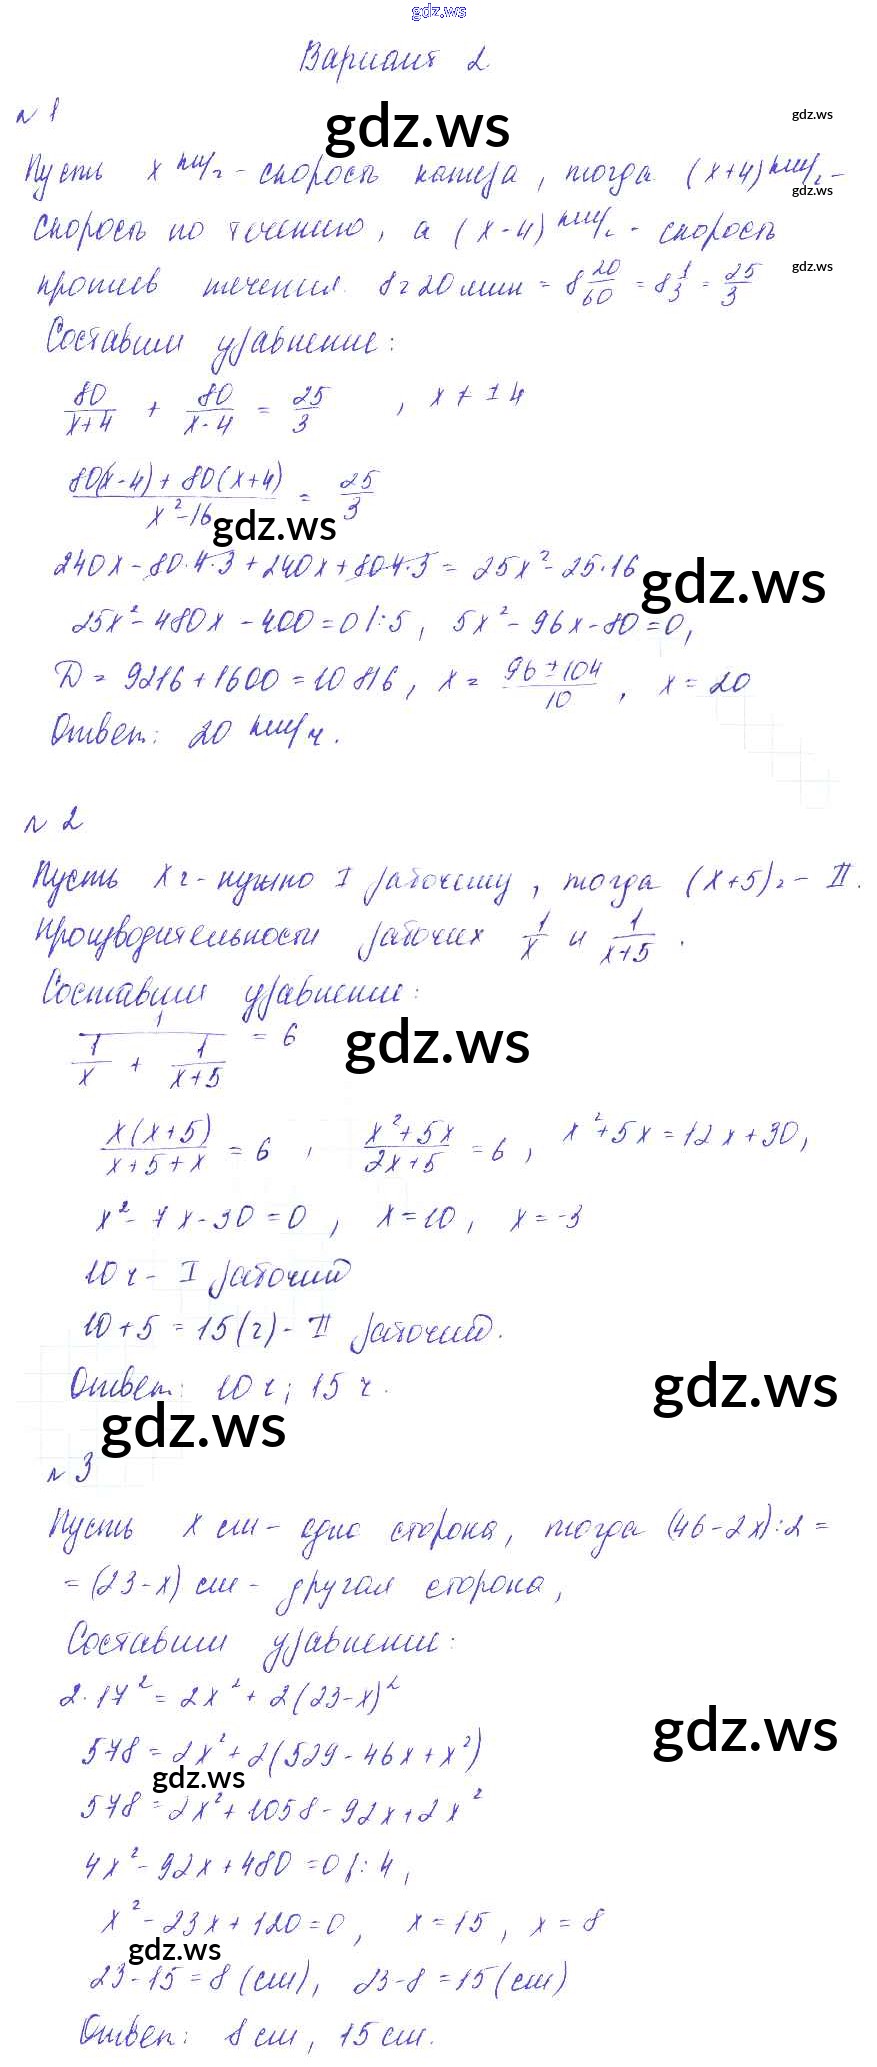 gdz.ws
Вариант 2
№ 1
gdz.ws
gdz.ws
Пусть x км/ч - скорость катера, тогда (x+4) км/ч -
gdz.ws
скорость по течению, а (x-4) км/ч - скорость
против течения. 8 ч 20 мин = 8 20/60 = 8 1/3 = 25/3
gdz.ws
Составим уравнение:
80/(x+4) + 80/(x-4) = 25/3 , x ≠ ±4
(80(x-4) + 80(x+4))/(x²-16) = 25/3
gdz.ws
240x - 80·4·3 + 240x + 80·4·3 = 25x² - 25·16
gdz.ws
25x² - 480x - 400 = 0 |:5, 5x² - 96x - 80 = 0,
D = 9216 + 1600 = 10816, x = (96 ± 104)/10, x = 20
Ответ: 20 км/ч.
№ 2
Пусть x ч - нужно I рабочему, тогда (x+5) ч - II.
Производительности рабочих 1/x и 1/(x+5).
Составим уравнение:
1/(1/x + 1/(x+5)) = 6
gdz.ws
x(x+5)/(x+5+x) = 6, (x²+5x)/(2x+5) = 6, x²+5x = 12x+30,
x² - 7x - 30 = 0, x = 10, x = -3
10 ч - I рабочий
10 + 5 = 15 (ч) - II рабочий.
Ответ: 10 ч; 15 ч.
gdz.ws
gdz.ws
№ 3
Пусть x см - одна сторона, тогда (46-2x):2 =
= (23-x) см - другая сторона,
Составим уравнение:
2·17² = 2x² + 2(23-x)²
gdz.ws
578 = 2x² + 2(529 - 46x + x²)
gdz.ws
578 = 2x² + 1058 - 92x + 2x²
4x² - 92x + 480 = 0 |:4,
x² - 23x + 120 = 0, x = 15, x = 8
gdz.ws
23-15 = 8 (см), 23-8 = 15 (см)
Ответ: 8 см, 15 см.